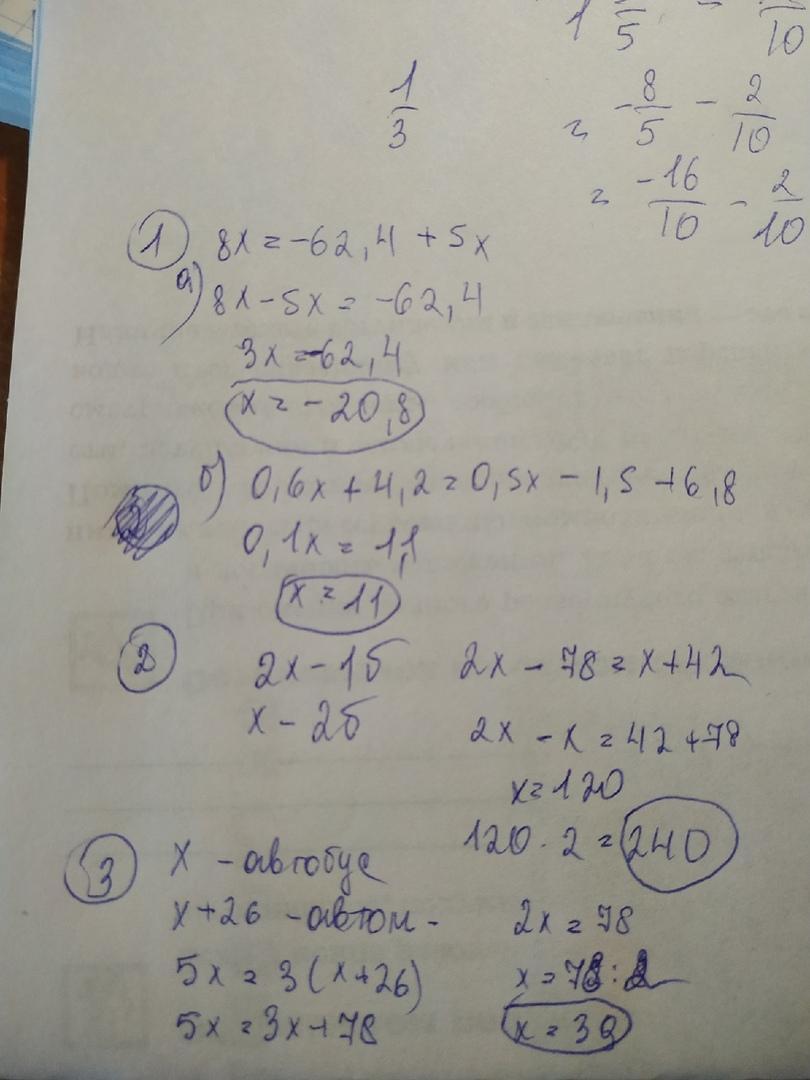 1 /5 - /10
1/3
= -8/5 - 2/10
= -16/10 - 2/10
1 8x = -62,4 + 5x
а) 8x - 5x = -62,4
3x = -62,4
x = -20,8
б) 0,6x + 4,2 = 0,5x - 1,5 + 6,8
0,1x = 1,1
x = 11
2 2x - 1б
x - 2б
2x - 78 = x + 42
2x - x = 42 + 78
x = 120
120 · 2 = 240
3 x - автобус
x + 26 - автом -
5x = 3(x + 26)
5x = 3x + 78
2x = 78
x = 78 : 2
x = 39